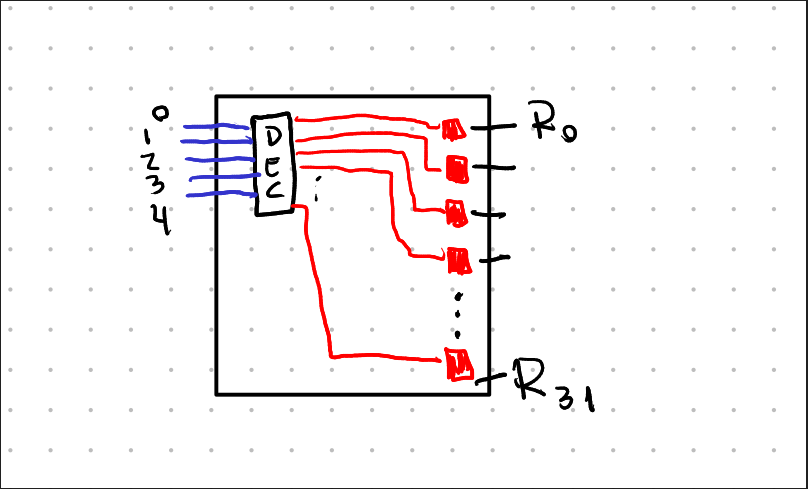 0
1
2
3
4
DEC
R0
R31